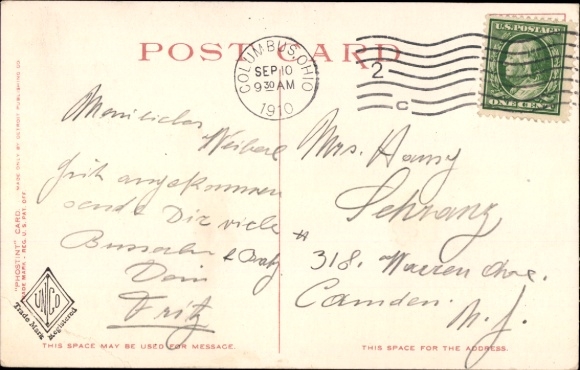 POST CARD
COLUMBUS, OHIO
SEP 10
9 30 AM
1910
2
C
U.S. POSTAGE
ONE CENT
MADE ONLY BY DETROIT PUBLISHING CO.
"PHOSTINT" CARD
TRADE MARK - REG. U.S. PAT. OFF.
angekommen
sende Dir viele
Dein
Fritz
Mrs. Harry
Schranz
# 318. Warren Ave.
Camden.
N. J.
UNCO
Trade Mark Registered
THIS SPACE MAY BE USED FOR MESSAGE.
THIS SPACE FOR THE ADDRESS.